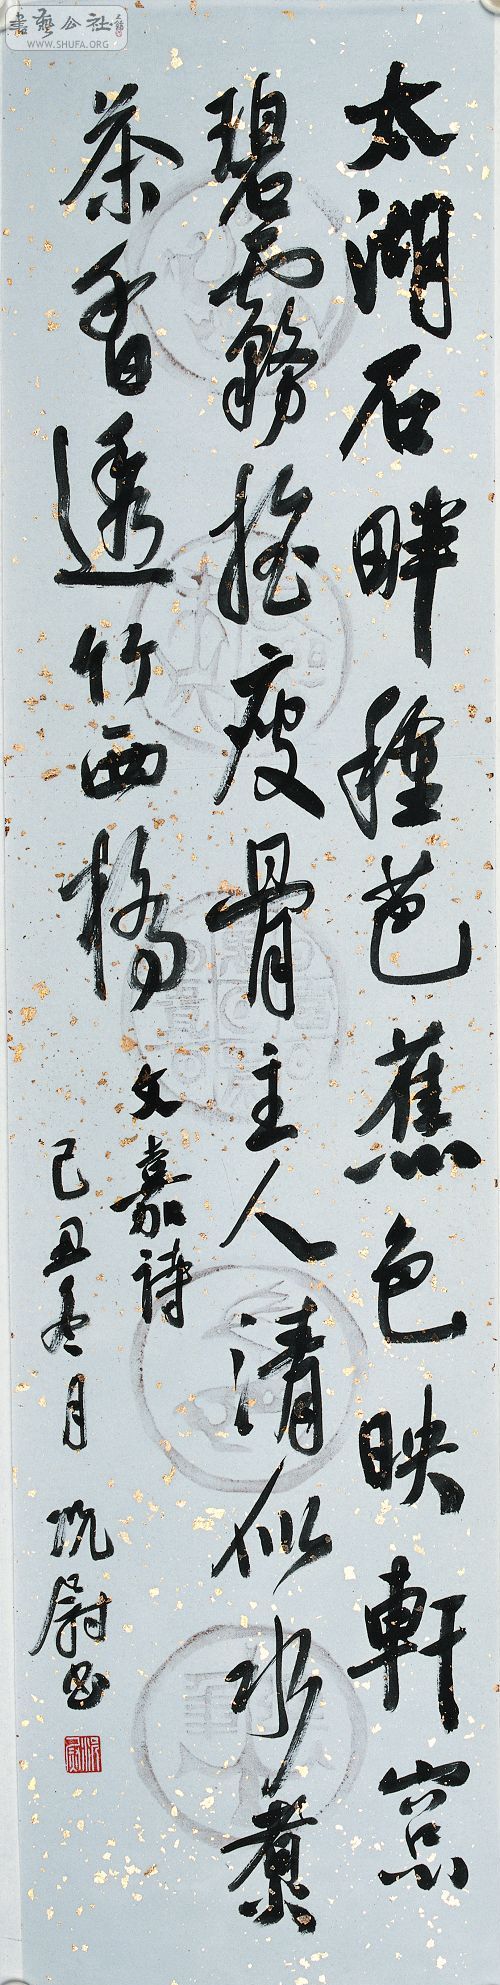 太湖石畔種芭蕉色映軒窓
碧霧搖瘦骨主人清似水煮
茶香透竹西橋
文嘉詩
己丑冬月
况尉书
書藝公社
WWW.SHUFA.ORG